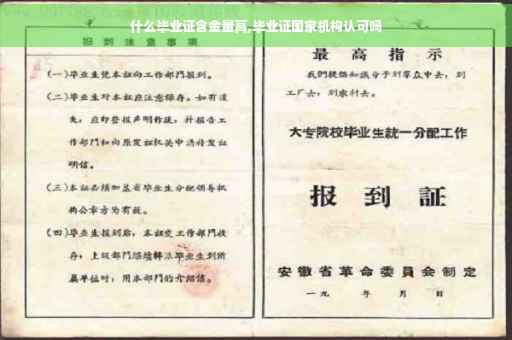 什么毕业证含金量高,毕业证国家机构认可吗
报到注意事项
(一)毕业生凭本证向工作部门报到。
(二)毕业生对本证应注意保存。如有遗
失，应即登报声明作废，并报告工
作部门和向原发证机关申请补发证
明信。
(三)本证必须加盖省毕业生分配领导机
构公章方为有效。
(四)毕业生报到后，本证交工作部门收
存；上级部门继续转派毕业生到所
属单位时，用本部门的介绍信。
最高指示
我们提倡知识分子到群众中去，到
工厂去，到农村去。
大专院校毕业生统一分配工作
报到证
安徽省革命委员会制定
一九 年 月 日